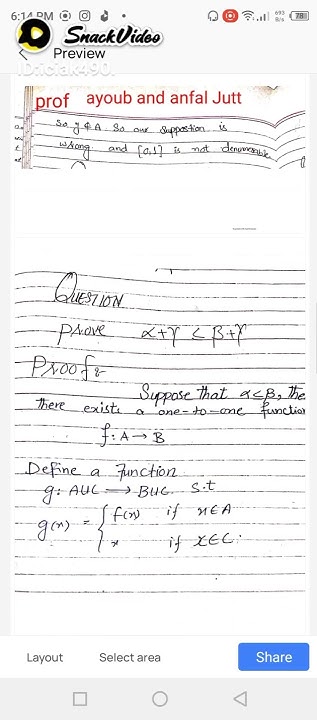 6:14 PM
693 B/s
78
SnackVideo
Preview
ID:iciak490
prof ayoub and anfal Jutt
So, y ∉ A. So our Suppostion is
wrong and [0,1] is not denumerable
QUESTION
Prove α+γ ≤ β+γ
Proof:-
Suppose that α≤β, the
there exists a one-to-one function
f: A → B
Define a Function
g: AUC → BUC s.t
g(x) = { f(x) if x∈A
x if x∈C.
Layout Select area Share